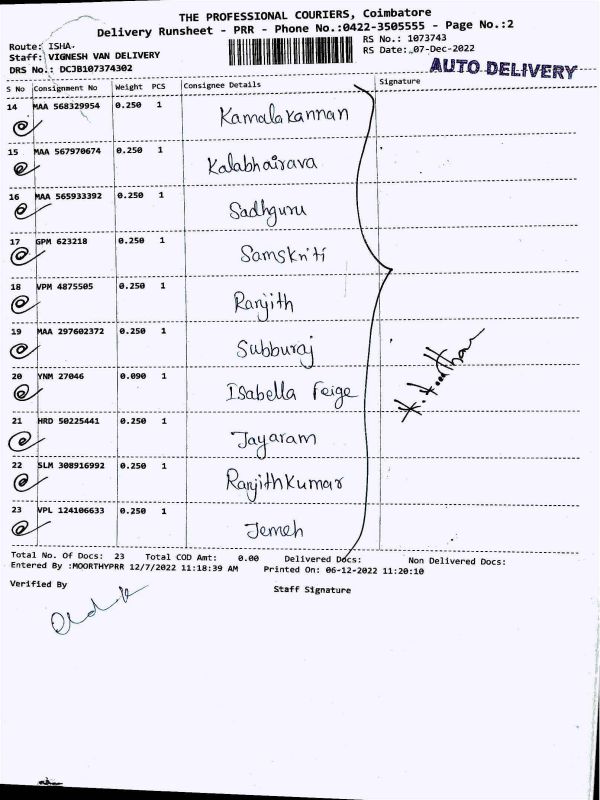 THE PROFESSIONAL COURIERS, Coimbatore
Delivery Runsheet - PRR - Phone No.:0422-3505555 - Page No.:2
Route: ISHA.
Staff: VIGNESH VAN DELIVERY
DRS No.: DCJB107374302
RS No.: 1073743
RS Date: 07-Dec-2022
AUTO DELIVERY
S No Consignment No Weight PCS Consignee Details Signature
14 MAA 568329954 0.250 1 Kamalakannan
15 MAA 567970674 0.250 1 Kalabhairava
16 MAA 565933392 0.250 1 Sadhguru
17 GPM 623218 0.250 1 Samskriti
18 VPM 4875505 0.250 1 Ranjith
19 MAA 297602372 0.250 1 Subburaj
20 YNM 27046 0.090 1 Isabella Feige
21 HRD 50225441 0.250 1 Jayaram
22 SLM 308916992 0.250 1 Ranjithkumar
23 VPL 124106633 0.250 1 Jemeh
Total No. Of Docs: 23 Total COD Amt: 0.00 Delivered Docs: Non Delivered Docs:
Entered By :MOORTHYPRR 12/7/2022 11:18:39 AM Printed On: 06-12-2022 11:20:10
Verified By Staff Signature